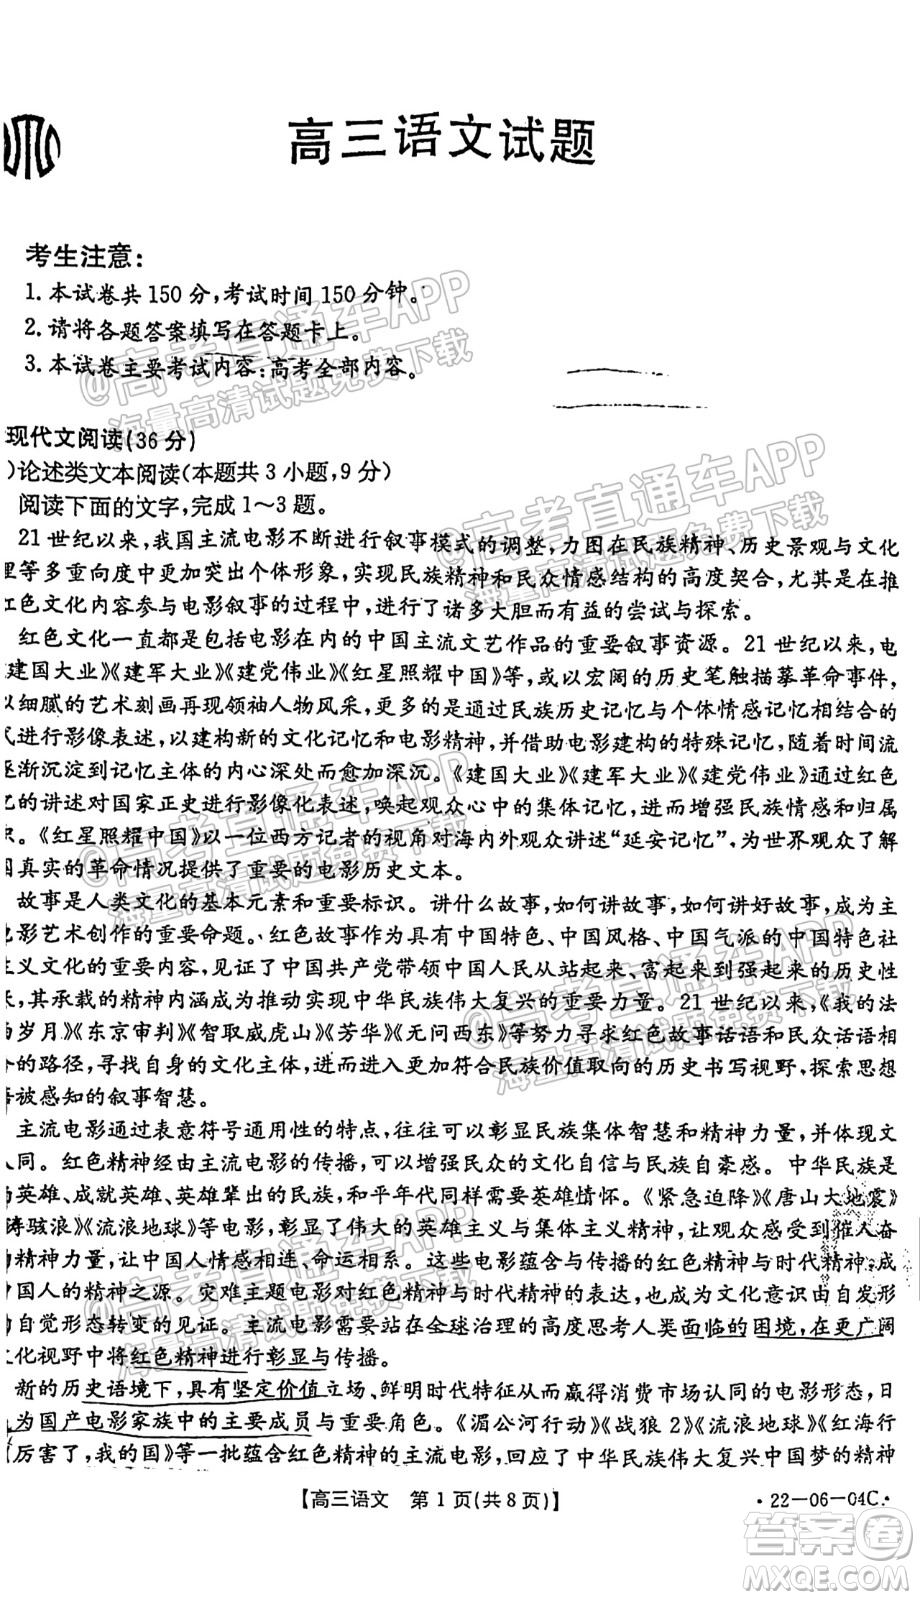 高三语文试题
考生注意：
1. 本试卷共 150 分，考试时间 150 分钟。
2. 请将各题答案填写在答题卡上。
3. 本试卷主要考试内容：高考全部内容。
现代文阅读(36 分)
)论述类文本阅读(本题共 3 小题，9 分)
阅读下面的文字，完成 1～3 题。
21 世纪以来，我国主流电影不断进行叙事模式的调整，力图在民族精神、历史景观与文化
里等多重向度中更加突出个体形象，实现民族精神和民众情感结构的高度契合，尤其是在推
红色文化内容参与电影叙事的过程中，进行了诸多大胆而有益的尝试与探索。
红色文化一直都是包括电影在内的中国主流文艺作品的重要叙事资源。21 世纪以来，电
建国大业》《建军大业》《建党伟业》《红星照耀中国》等，或以宏阔的历史笔触描摹革命事件，
以细腻的艺术刻画再现领袖人物风采，更多的是通过民族历史记忆与个体情感记忆相结合的
式进行影像表述，以建构新的文化记忆和电影精神，并借助电影建构的特殊记忆，随着时间流
逐渐沉淀到记忆主体的内心深处而愈加深沉。《建国大业》《建军大业》《建党伟业》通过红色
忆的讲述对国家正史进行影像化表述，唤起观众心中的集体记忆，进而增强民族情感和归属
。《红星照耀中国》以一位西方记者的视角对海内外观众讲述“延安记忆”，为世界观众了解
国真实的革命情况提供了重要的电影历史文本。
故事是人类文化的基本元素和重要标识。讲什么故事，如何讲故事，如何讲好故事，成为主
电影艺术创作的重要命题。红色故事作为具有中国特色、中国风格、中国气派的中国特色社
主义文化的重要内容，见证了中国共产党带领中国人民从站起来、富起来到强起来的历史性
，其承载的精神内涵成为推动实现中华民族伟大复兴的重要力量。21 世纪以来，《我的法
的岁月》《东京审判》《智取威虎山》《芳华》《无问西东》等努力寻求红色故事话语和民众话语相
合的路径，寻找自身的文化主体，进而进入更加符合民族价值取向的历史书写视野，探索思想
被感知的叙事智慧。
主流电影通过表意符号通用性的特点，往往可以彰显民族集体智慧和精神力量，并体现文
认同。红色精神经由主流电影的传播，可以增强民众的文化自信与民族自豪感。中华民族是
的英雄、成就英雄、英雄辈出的民族，和平年代同样需要英雄情怀。《紧急迫降》《唐山大地震》
涛骇浪》《流浪地球》等电影，彰显了伟大的英雄主义与集体主义精神，让观众感受到催人奋
的精神力量，让中国人情感相连、命运相系。这些电影蕴含与传播的红色精神与时代精神，成
中国人的精神之源。灾难主题电影对红色精神与时代精神的表达，也成为文化意识由自发形
向自觉形态转变的见证。主流电影需要站在全球治理的高度思考人类面临的困境，在更广阔
文化视野中将红色精神进行彰显与传播。
新的历史语境下，具有坚定价值立场、鲜明时代特征从而赢得消费市场认同的电影形态，日
为国产电影家族中的主要成员与重要角色。《湄公河行动》《战狼 2》《流浪地球》《红海行
《厉害了，我的国》等一批蕴含红色精神的主流电影，回应了中华民族伟大复兴中国梦的精神
【高三语文 第 1 页(共 8 页)】
·22－06－04C·
@高考直通车APP
海量高清试题免费下载
@高考直通车APP
海量高清试题免费下载
@高考直通车APP
海量高清试题免费下载
@高考直通车APP
海量高清试题免费下载
@高考直通车APP
海量高清试题免费下载
答案卷
MXQE.COM